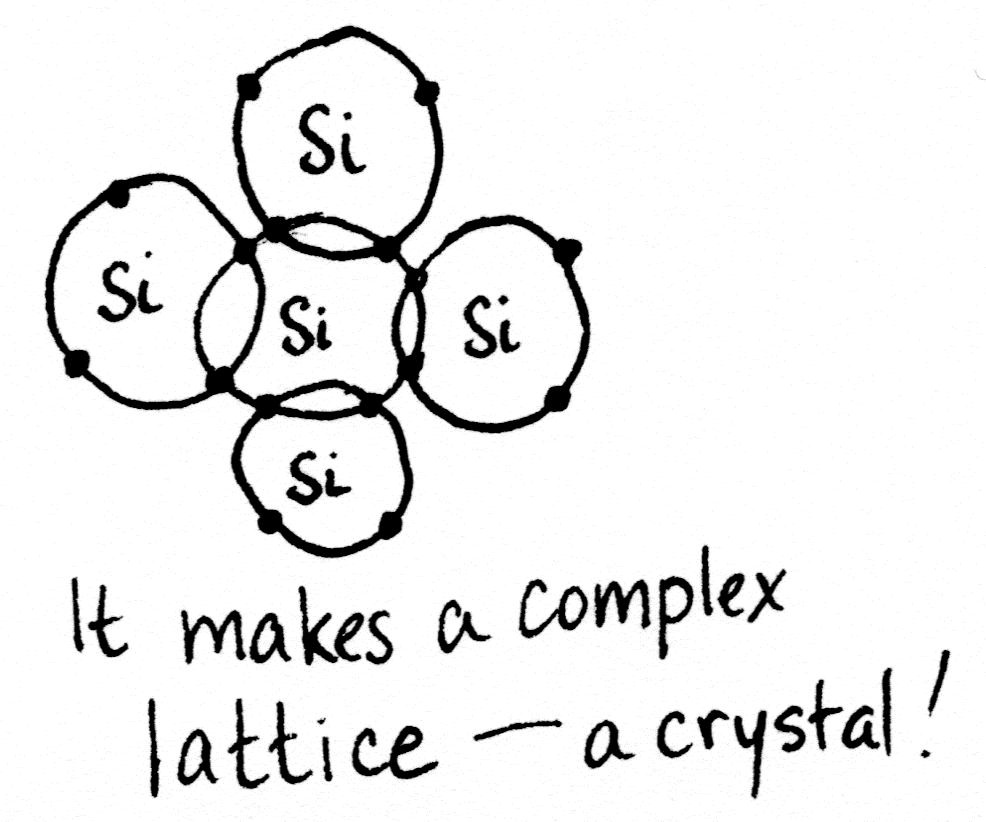 Si
Si
Si
Si
Si
It makes a complex
lattice — a crystal!